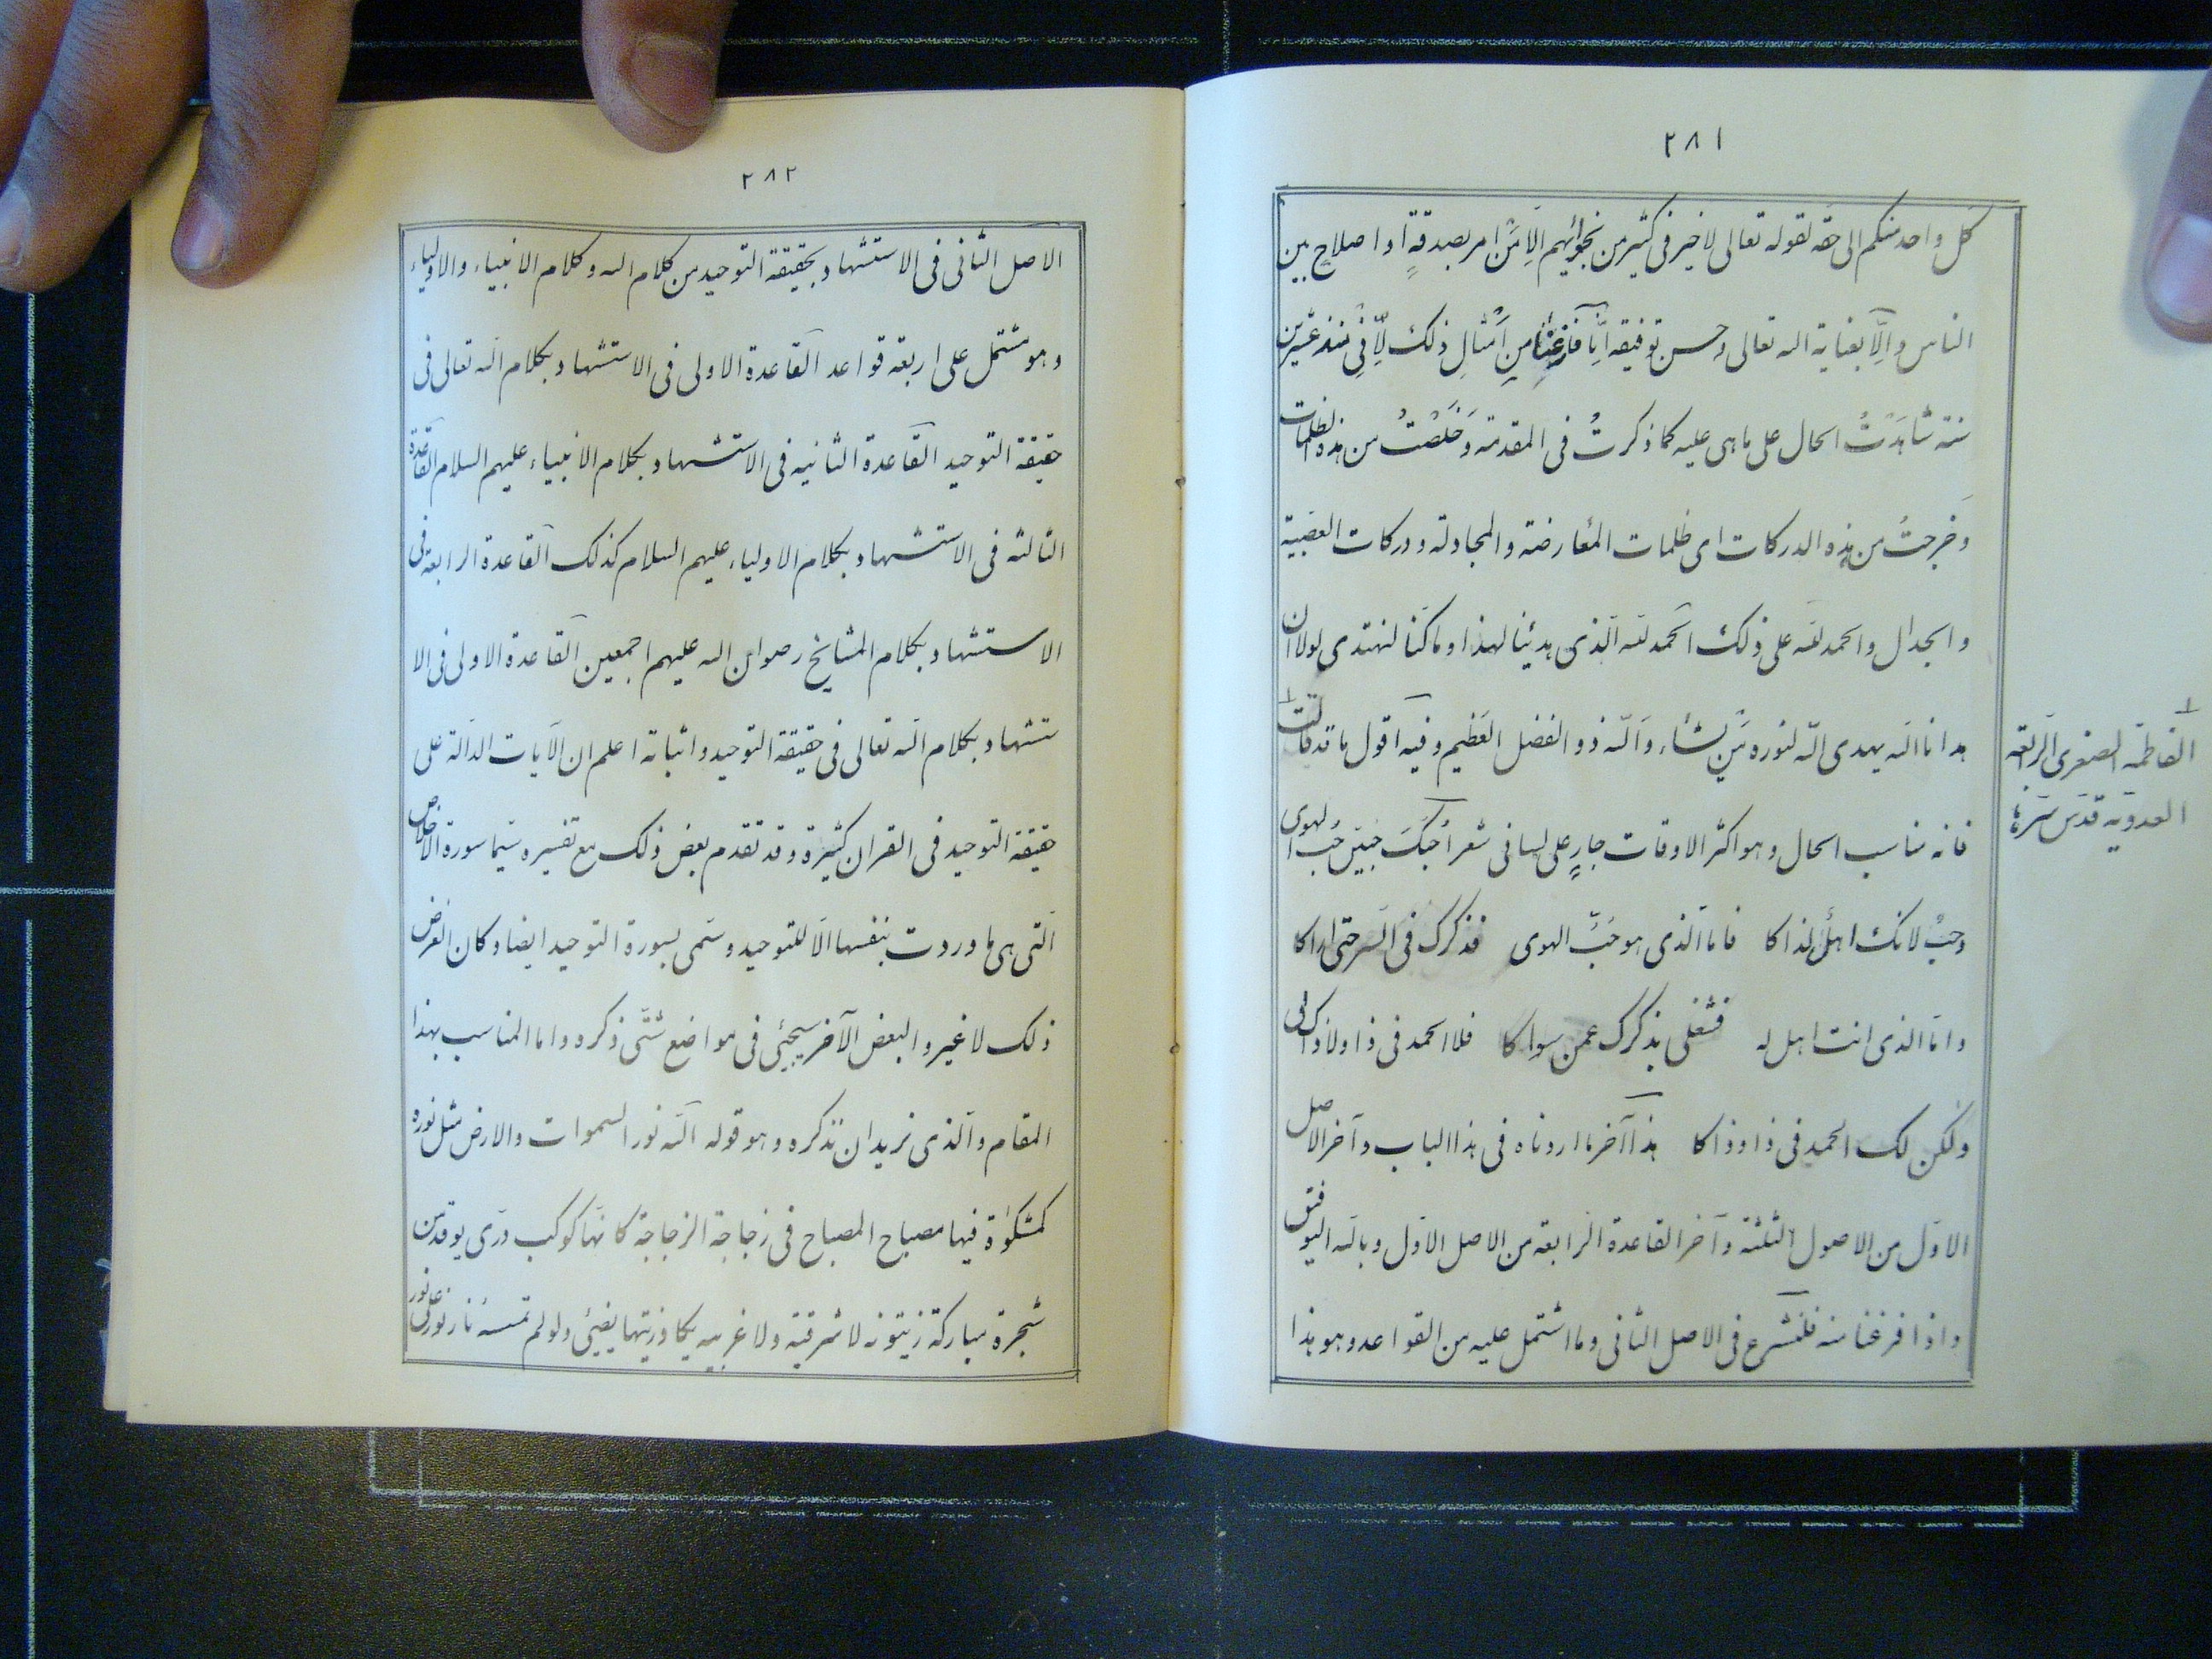 ٢٨١
كل واحد منكم الى حقه لقوله تعالى لا خير فى كثير من نجوئهم الا من امر بصدقةٍ او اصلاح بين
الناس والّا بعناية الله تعالى وحسن توفيقه انا فارغنا من امثال ذلك لانّى منذ عشرين
سنة شاهدتُ الحال على ما هى عليه كما ذكرتُ فى المقدمة وخلصتُ من هذه الظلمات
وخرجتُ من هذه الدركات اى ظلمات المعارضة والمجادلة ودركات العصبية
والجدال والحمد لله على ذلك الحمد لله الذى هدئنا لهذا وما كنا لنهتدى لولا ان
هدانا الله يهدى الله لنوره من يشاء والله ذو الفضل العظيم وفيه اقول ما قد قالت
فانه مناسب الحال وهو اكثر الاوقات جارٍ على لسانى شعر احبك حبين حب الهوى
وحبٌ لانك اهلٌ لذاكا فاما الذى هو حبّ الهوى فذكرك فى السر حتى اراكا
واما الذى انت اهل له فشغلى بذكرك عمن سواكا فلا الحمد فى ذا ولا ذاك لى
ولكن لك الحمد فى ذا وذاكا هذا آخر ما اردناه فى هذا الباب وآخر الاصل
الاول من الاصول الثلثة وآخر القاعدة الرابعة من الاصل الاول وبالله التوفيق
واذا فرغنا منه فلنشرع فى الاصل الثانى وما اشتمل عليه من القواعد وهو هذا
الفاطمه الصغرى الرابعه
العدويه قدس سرها
٢٨٢
الاصل الثانى فى الاستشهاد بحقيقة التوحيد من كلام الله وكلام الانبياء والاولياء
وهو مشتمل على اربعة قواعد القاعدة الاولى فى الاستشهاد بكلام الله تعالى فى
حقيقة التوحيد القاعدة الثانيه فى الاستشهاد بكلام الانبياء عليهم السلام القاعدة
الثالثه فى الاستشهاد بكلام الاولياء عليهم السلام كذلك القاعدة الرابعة فى
الاستشهاد بكلام المشايخ رضوان الله عليهم اجمعين القاعدة الاولى فى الا
ستشهاد بكلام الله تعالى فى حقيقة التوحيد واثباته اعلم ان الآيات الدالة على
حقيقة التوحيد فى القران كثيرة وقد تقدم بعض ذلك مع تفسيره سيما سورة الاخلاص
التى هى ما وردت بنفسها الّا للتوحيد وسمى بسورة التوحيد ايضا وكان الغرض
ذلك لا غير والبعض الآخر سيجئى فى مواضع شتّى ذكره واما المناسب بهذا
المقام والذى نريد ان نذكره وهو قوله الله نور السموات والارض مثل نوره
كمشكوٰة فيها مصباح المصباح فى زجاجة الزجاجة كانّها كوكب درى يوقد من
شجرة مباركة زيتونه لا شرقية ولا غربيه يكاد زيتها يضيئى ولو لم تمسسه نار نور على نور